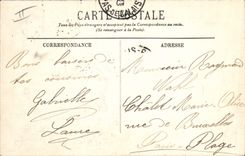 II
CARTE POSTALE
Tous les Pays étrangers n'acceptent pas la Correspondance au recto.
(Se renseigner à la Poste)
CORRESPONDANCE
ADRESSE
Bons baisers de
tes cousines
Gabrielle
Laure
Monsieur Raymond
Chalet Marie
rue de Bruxelles
Paris-Plage